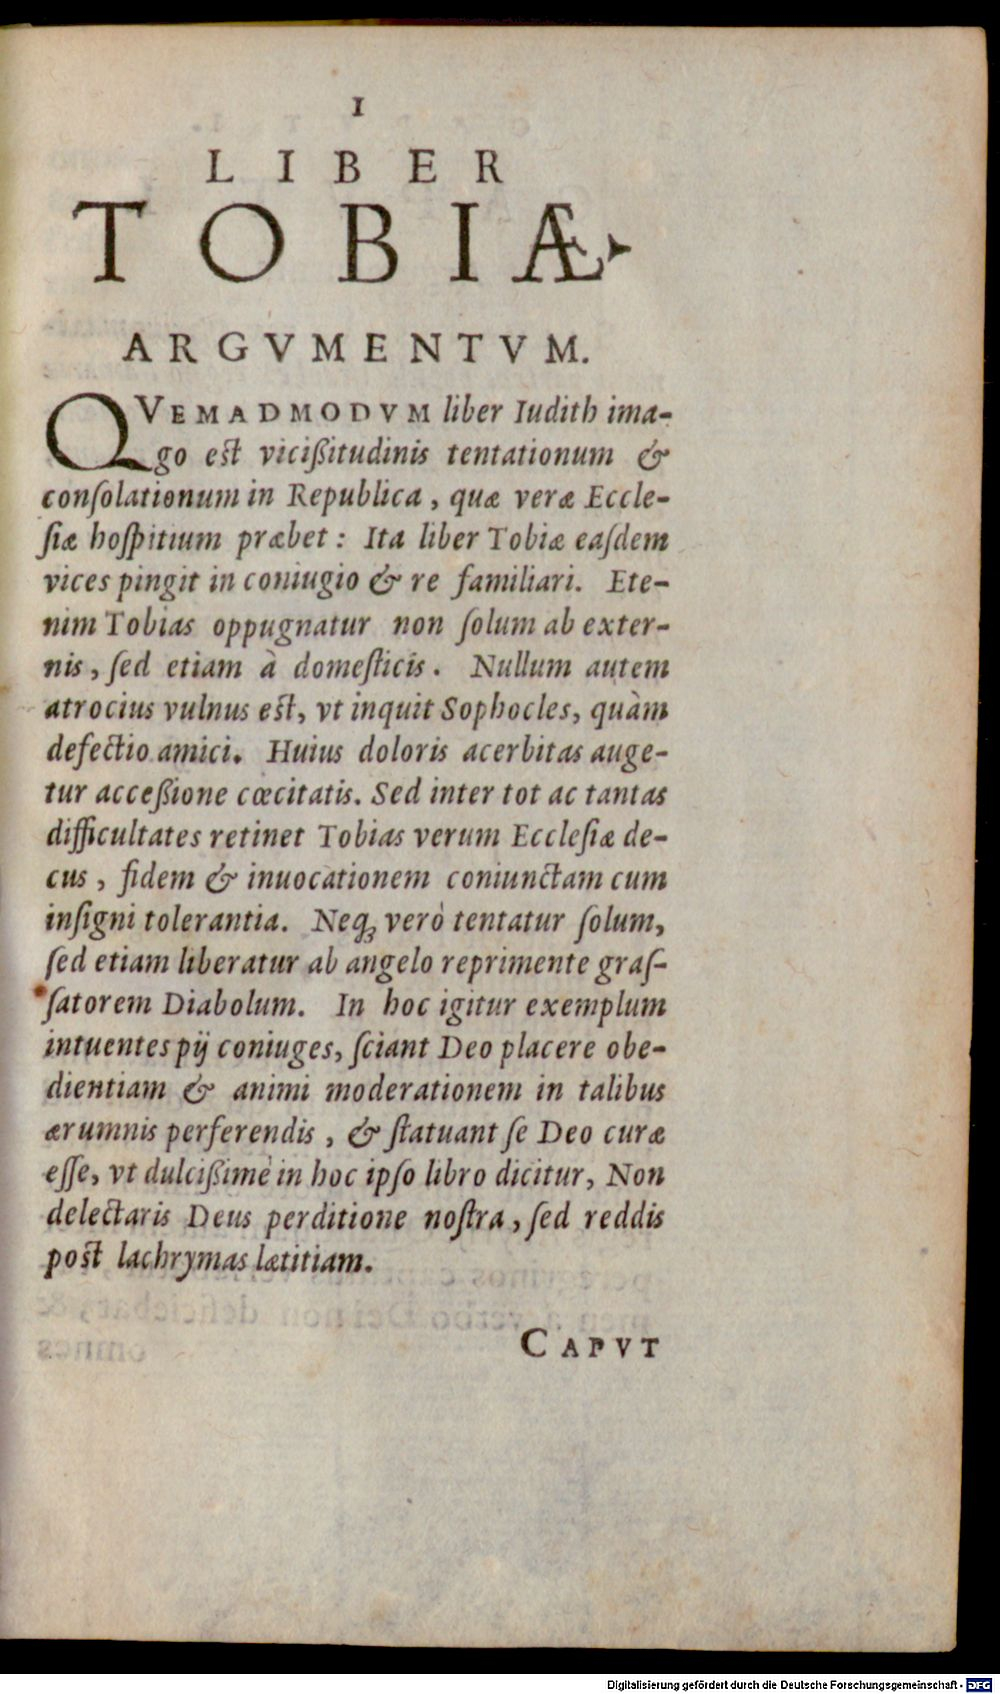 1
LIBER
TOBIÆ
ARGVMENTVM.
QVEMADMODVM liber Iudith ima-
go est vicißitudinis tentationum &
conſolationum in Republica, quæ veræ Eccle-
ſiæ hoſpitium præbet: Ita liber Tobiæ eaſdem
vices pingit in coniugio & re familiari. Ete-
nim Tobias oppugnatur non ſolum ab exter-
nis, ſed etiam à domeſticis. Nullum autem
atrocius vulnus est, vt inquit Sophocles, quàm
defectio amici. Huius doloris acerbitas auge-
tur acceßione cœcitatis. Sed inter tot ac tantas
difficultates retinet Tobias verum Eccleſiæ de-
cus, fidem & inuocationem coniunctam cum
inſigni tolerantia. Neq; verò tentatur ſolum,
ſed etiam liberatur ab angelo reprimente graſ-
ſatorem Diabolum. In hoc igitur exemplum
intuentes pij coniuges, ſciant Deo placere obe-
dientiam & animi moderationem in talibus
ærumnis perferendis, & ſtatuant ſe Deo curæ
eſſe, vt dulcißimè in hoc ipſo libro dicitur, Non
delectaris Deus perditione noſtra, ſed reddis
post lachrymas lætitiam.
CAPVT
Digitalisierung gefördert durch die Deutsche Forschungsgemeinschaft - DFG